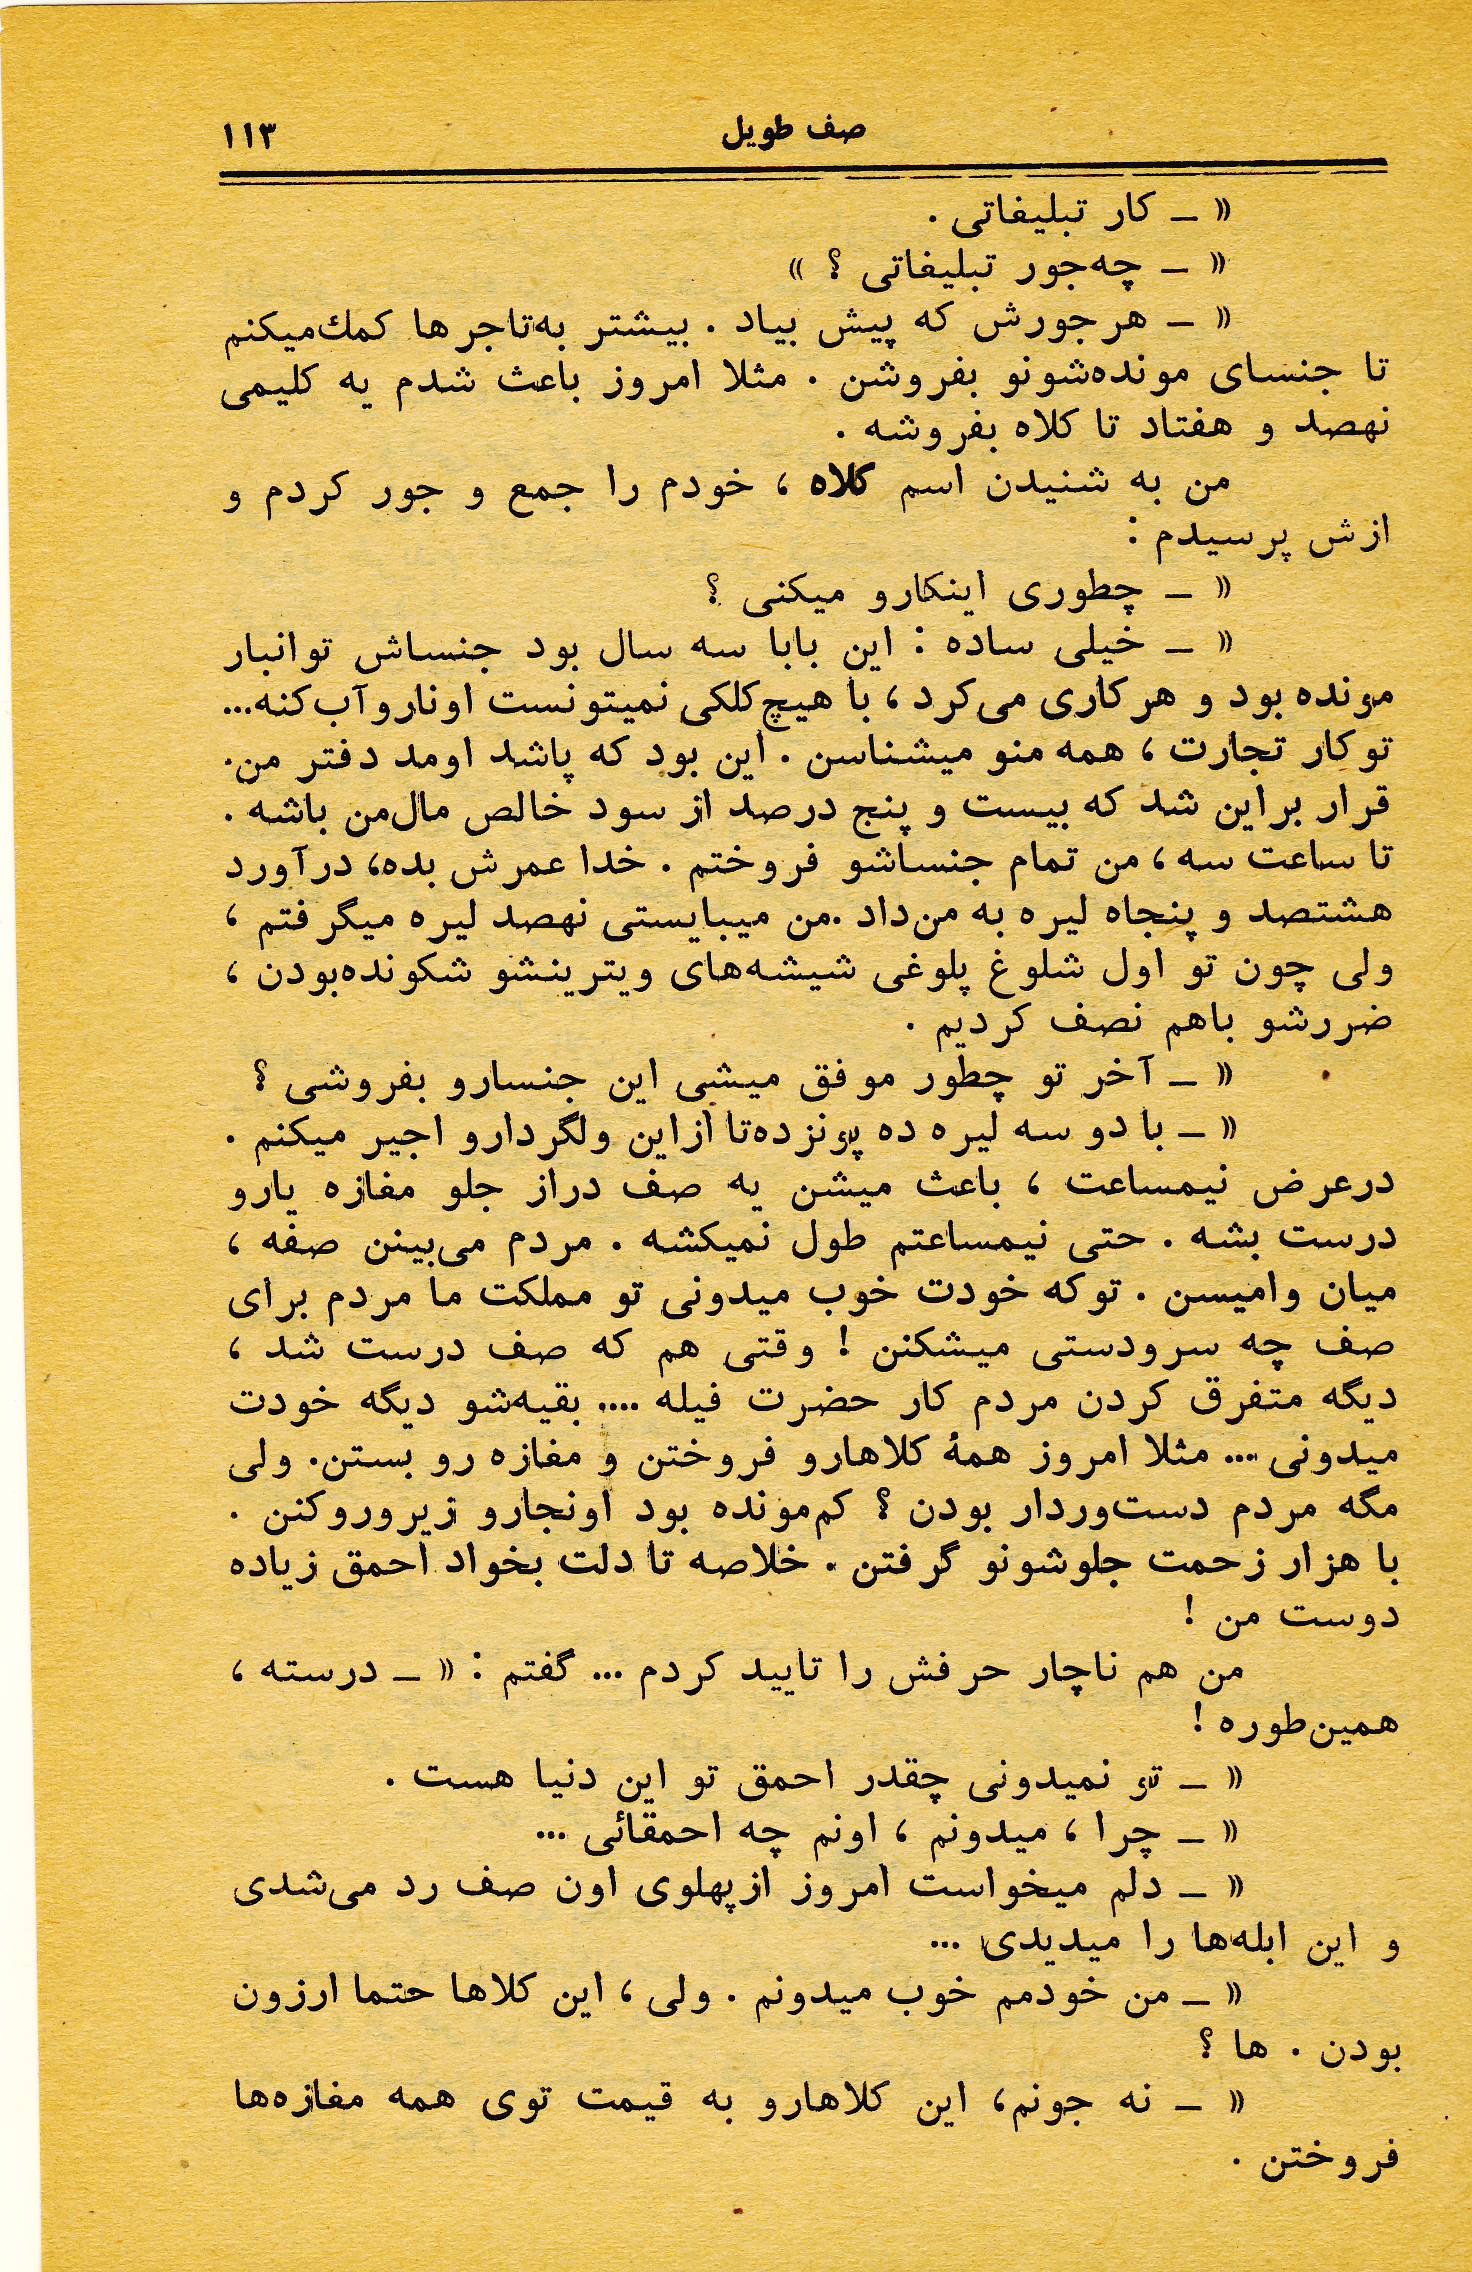 صف طویل ۱۱۳
« ـ کار تبلیغاتی .
« ـ چه‌جور تبلیغاتی ؟ »
« ـ هرجورش که پیش بیاد . بیشتر به‌تاجرها کمك‌میکنم
تا جنسای مونده‌شونو بفروشن . مثلا امروز باعث شدم یه کلیمی
نهصد و هفتاد تا کلاه بفروشه .
من به شنیدن اسم کلاه ، خودم را جمع و جور کردم و
ازش پرسیدم :
« ـ چطوری اینکارو میکنی ؟
« ـ خیلی ساده : این بابا سه سال بود جنساش توانبار
مونده بود و هرکاری می‌کرد ، با هیچ‌کلکی نمیتونست اوناروآب‌کنه...
توکار تجارت ، همه منو میشناسن . این بود که پاشد اومد دفتر من.
قرار براین شد که بیست و پنج درصد از سود خالص مال‌من باشه .
تا ساعت سه ، من تمام جنساشو فروختم . خدا عمرش بده، درآورد
هشتصد و پنجاه لیره به من‌داد .من میبایستی نهصد لیره میگرفتم ،
ولی چون تو اول شلوغ پلوغی شیشه‌های ویترینشو شکونده‌بودن ،
ضررشو باهم نصف کردیم .
« ـ آخر تو چطور موفق میشی این جنسارو بفروشی ؟
« ـ با دو سه لیره ده پونزده‌تا ازاین ولگردارو اجیر میکنم .
درعرض نیمساعت ، باعث میشن یه صف دراز جلو مغازه یارو
درست بشه . حتی نیمساعتم طول نمیکشه . مردم می‌بینن صفه ،
میان وامیسن . توکه خودت خوب میدونی تو مملکت ما مردم برای
صف چه سرودستی میشکنن ! وقتی هم که صف درست شد ،
دیگه متفرق کردن مردم کار حضرت فیله .... بقیه‌شو دیگه خودت
میدونی ... مثلا امروز همهٔ کلاهارو فروختن و مغازه رو بستن. ولی
مگه مردم دست‌وردار بودن ؟ کم‌مونده بود اونجارو زیروروکنن .
با هزار زحمت جلوشونو گرفتن . خلاصه تا دلت بخواد احمق زیاده
دوست من !
من هم ناچار حرفش را تایید کردم ... گفتم : « ـ درسته ،
همین‌طوره !
« ـ تو نمیدونی چقدر احمق تو این دنیا هست .
« ـ چرا ، میدونم ، اونم چه احمقائی ...
« ـ دلم میخواست امروز ازپهلوی اون صف رد می‌شدی
و این ابله‌ها را میدیدی ...
« ـ من خودمم خوب میدونم . ولی ، این کلاها حتما ارزون
بودن . ها ؟
« ـ نه جونم، این کلاهارو به قیمت توی همه مغازه‌ها
فروختن .